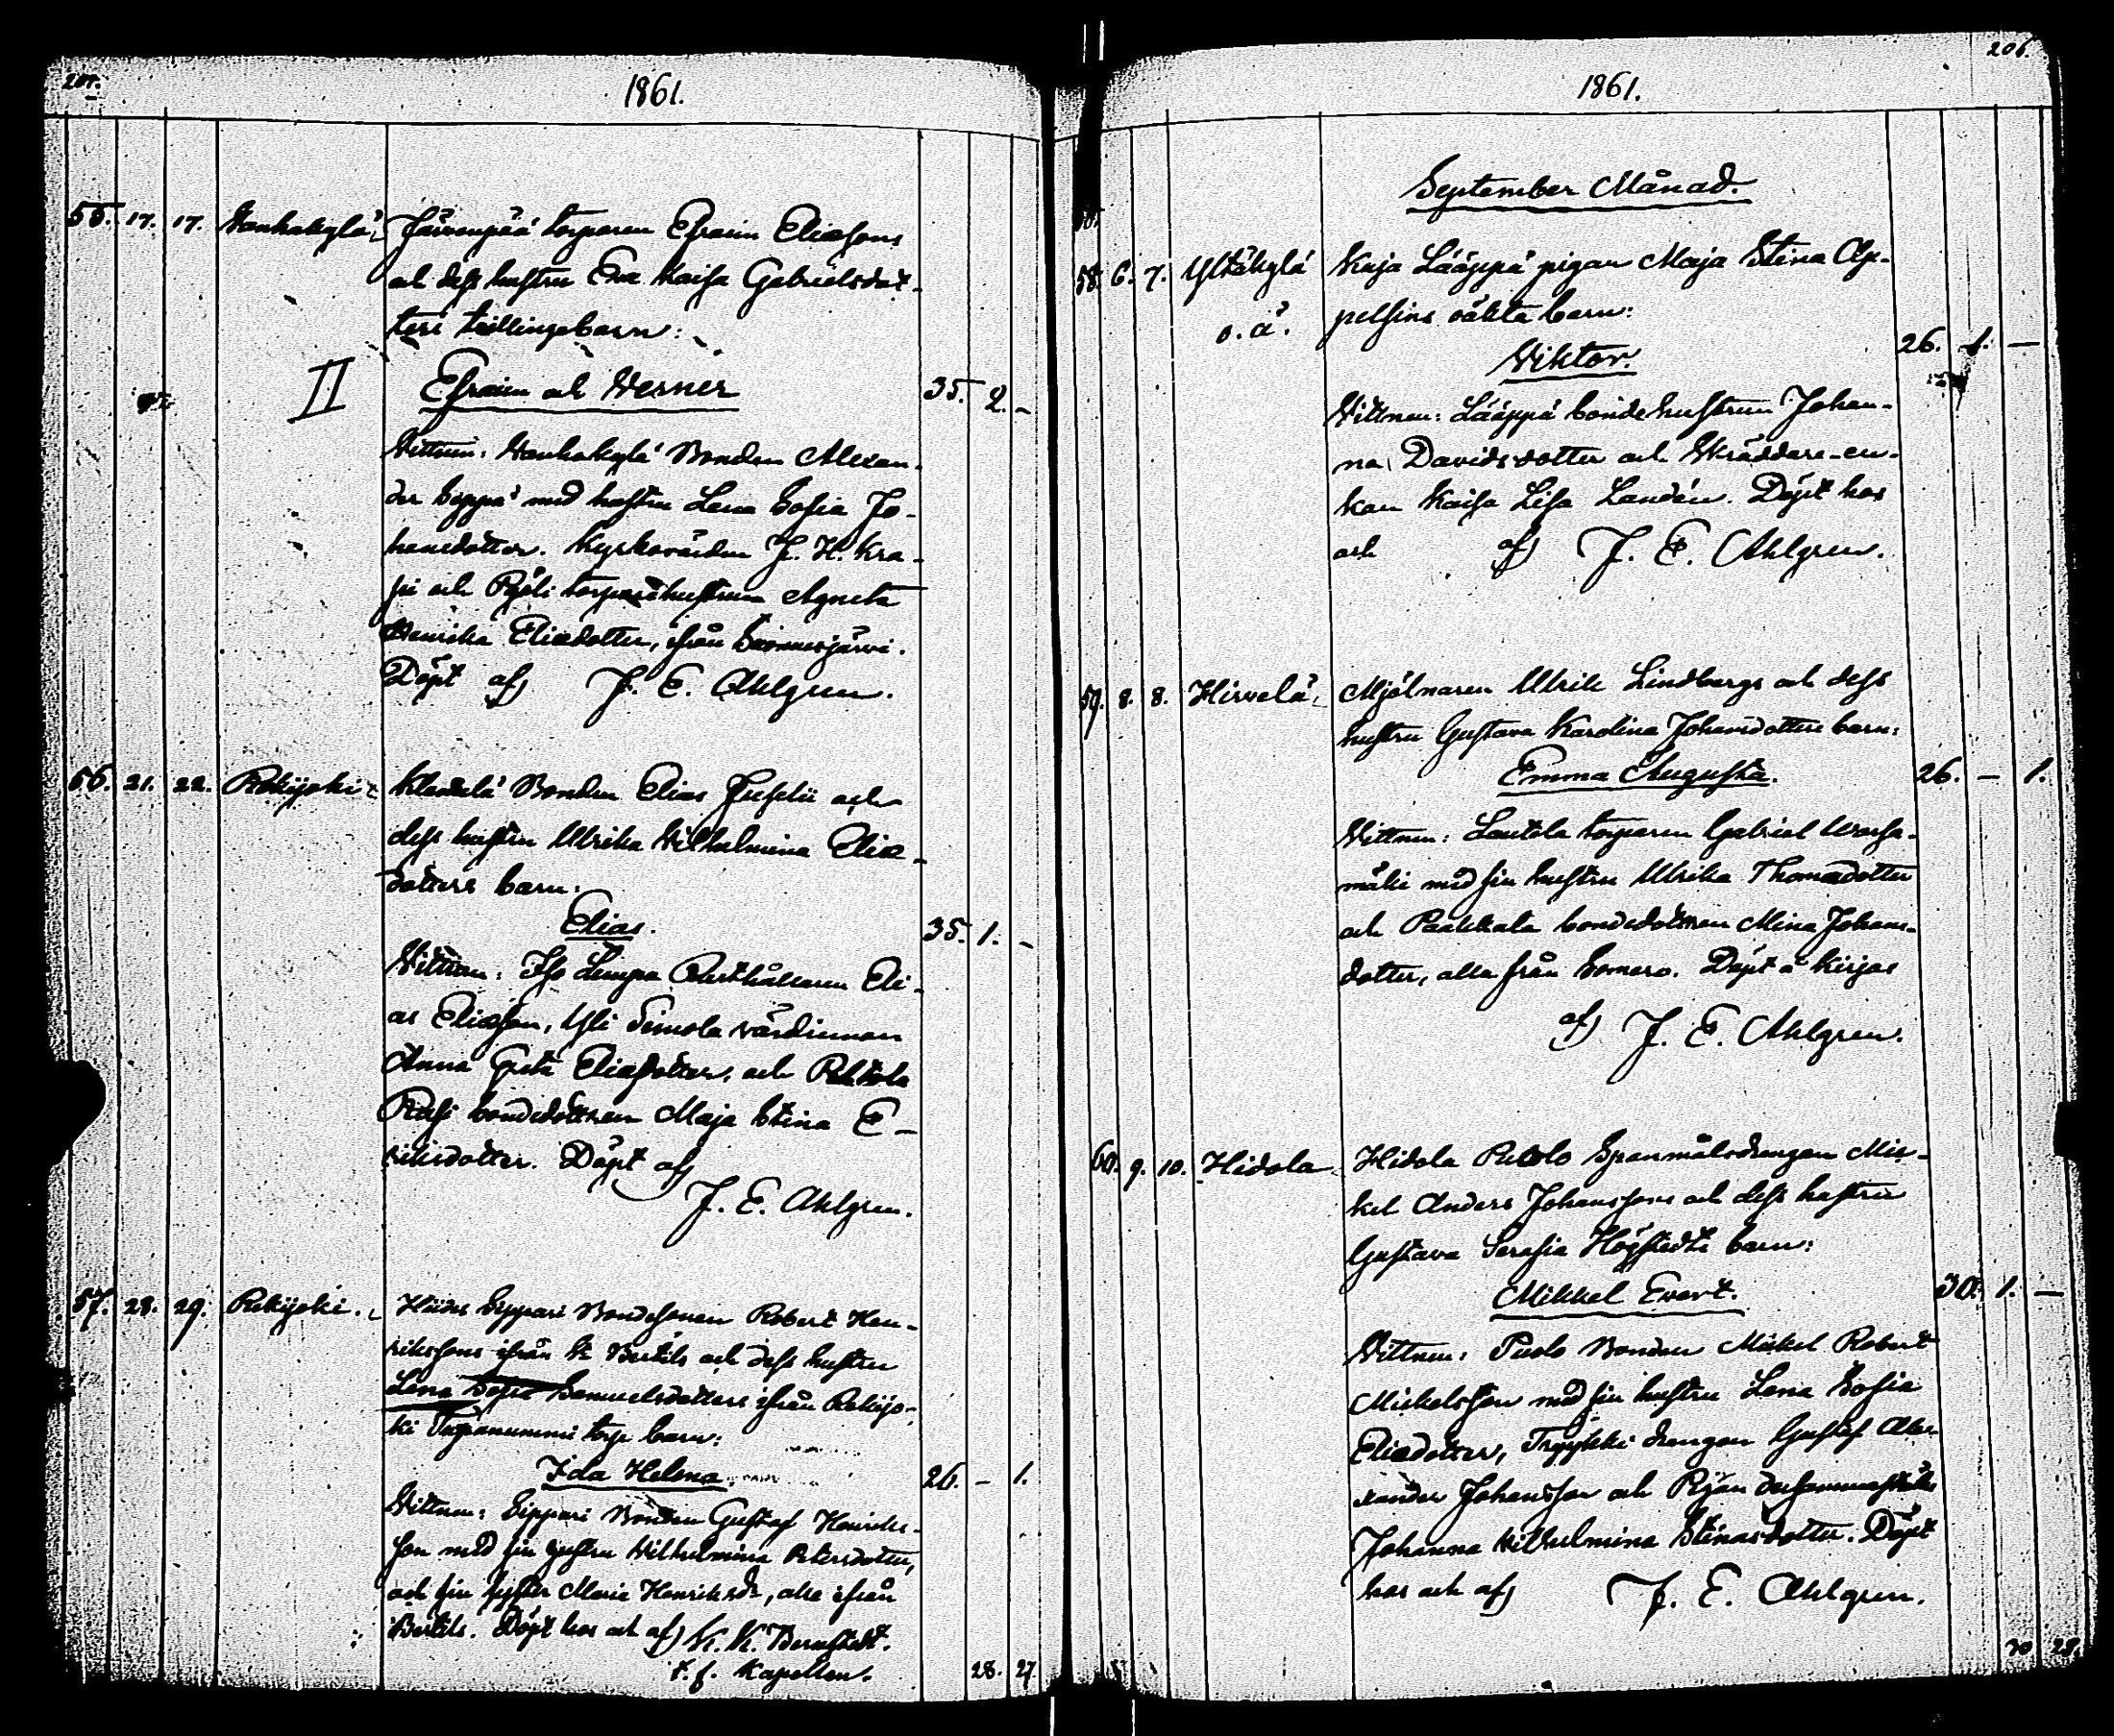 1861.
55. 17. 17. Wanhakylä Järvenpää torparen Efraim Eliassons
och dess hustru Eva Kaisa Gabrielsdot-
ters tvillingebarn:
II Efraim och Werner 35. 2. -
Vittnen: Wanhakylä Bonden Alexan-
der Seppä med hustru Lena Sofia Jo-
hansdotter. Kyrkovärden J. H. Kra-
pi och torparehustrun Agneta
Henrika Eliædotter, ifrån Somerjärvi.
Döpt af J. E. Ahlgren.
56. 21. 22. Rekijoki Bonden Elias och
dess hustru Ulrika Wilhelmina Eliæ-
dotters barn:
Elias. 35. 1. -
Vittnen: Iso Lempa Rusthållaren Eli-
as Eliæson, Yli Simola värdinnan
Anna Greta Eliædotter, och
bondedottren Maja Stina E-
riksdotter. Döpt af
J. E. Ahlgren.
57. 28. 29. Rekijoki. Sippari Bondesonen Robert Hen-
rikssons ifrån St Bertils och dess hustru
Lena Sofia Samuelsdotters ifrån Rekijo-
ki torp barn:
Ida Helena. 26. - 1.
Vittnen: Sippari Bonden Gustaf Henriks-
son med sin hustru Wilhelmina Petersdotter,
och sin syster Maria Henriksdr, alla ifrån
Bertils. Döpt hos och af K. K. Bernstedt.
t. f. Kapellan.
28. 27
206.
1861.
September Månad.
58. 6. 7. Yltäkylä Kaja Lääppä pigan Maja Stina Ap-
o. ä. pelsins oäkta barn:
Viktor. 26. 1. -
Vittnen: Lääppä bondehustrun Johan-
na Davidsdotter och Skräddare-en-
kan Kaisa Lisa Landén. Döpt hos
och af J. E. Ahlgren.
59. 8. 8. Hirvelä Mjölnaren Ulrik Lindbergs och dess
hustru Gustava Karolina Johansdotters barn:
Emma Augusta. 26. - 1.
Vittnen: Lautela torparen Gabriel
mäki med sin hustru Ulrika Thomædotter
och Paakkala bondedottren Mina Johans-
dotter, alla från Somero. Döpt å Kirjas
af J. E. Ahlgren.
60. 9. 10. Hidola Hidola Spanmålsdrengen Mic-
kel Anders Johanssons och dess hustru
Gustava Serafia Högstedts barn:
Mikkel Evert. 30. 1. -
Vittnen: Bonden Mickel Robert
Mickelsson med sin hustru Lena Sofia
Eliædotter, Tryykki drengen Gustaf Alex-
ander Johansson och
Johanna Wilhelmina Stinasdotter. Döpt
hos och af J. E. Ahlgren.
30 28